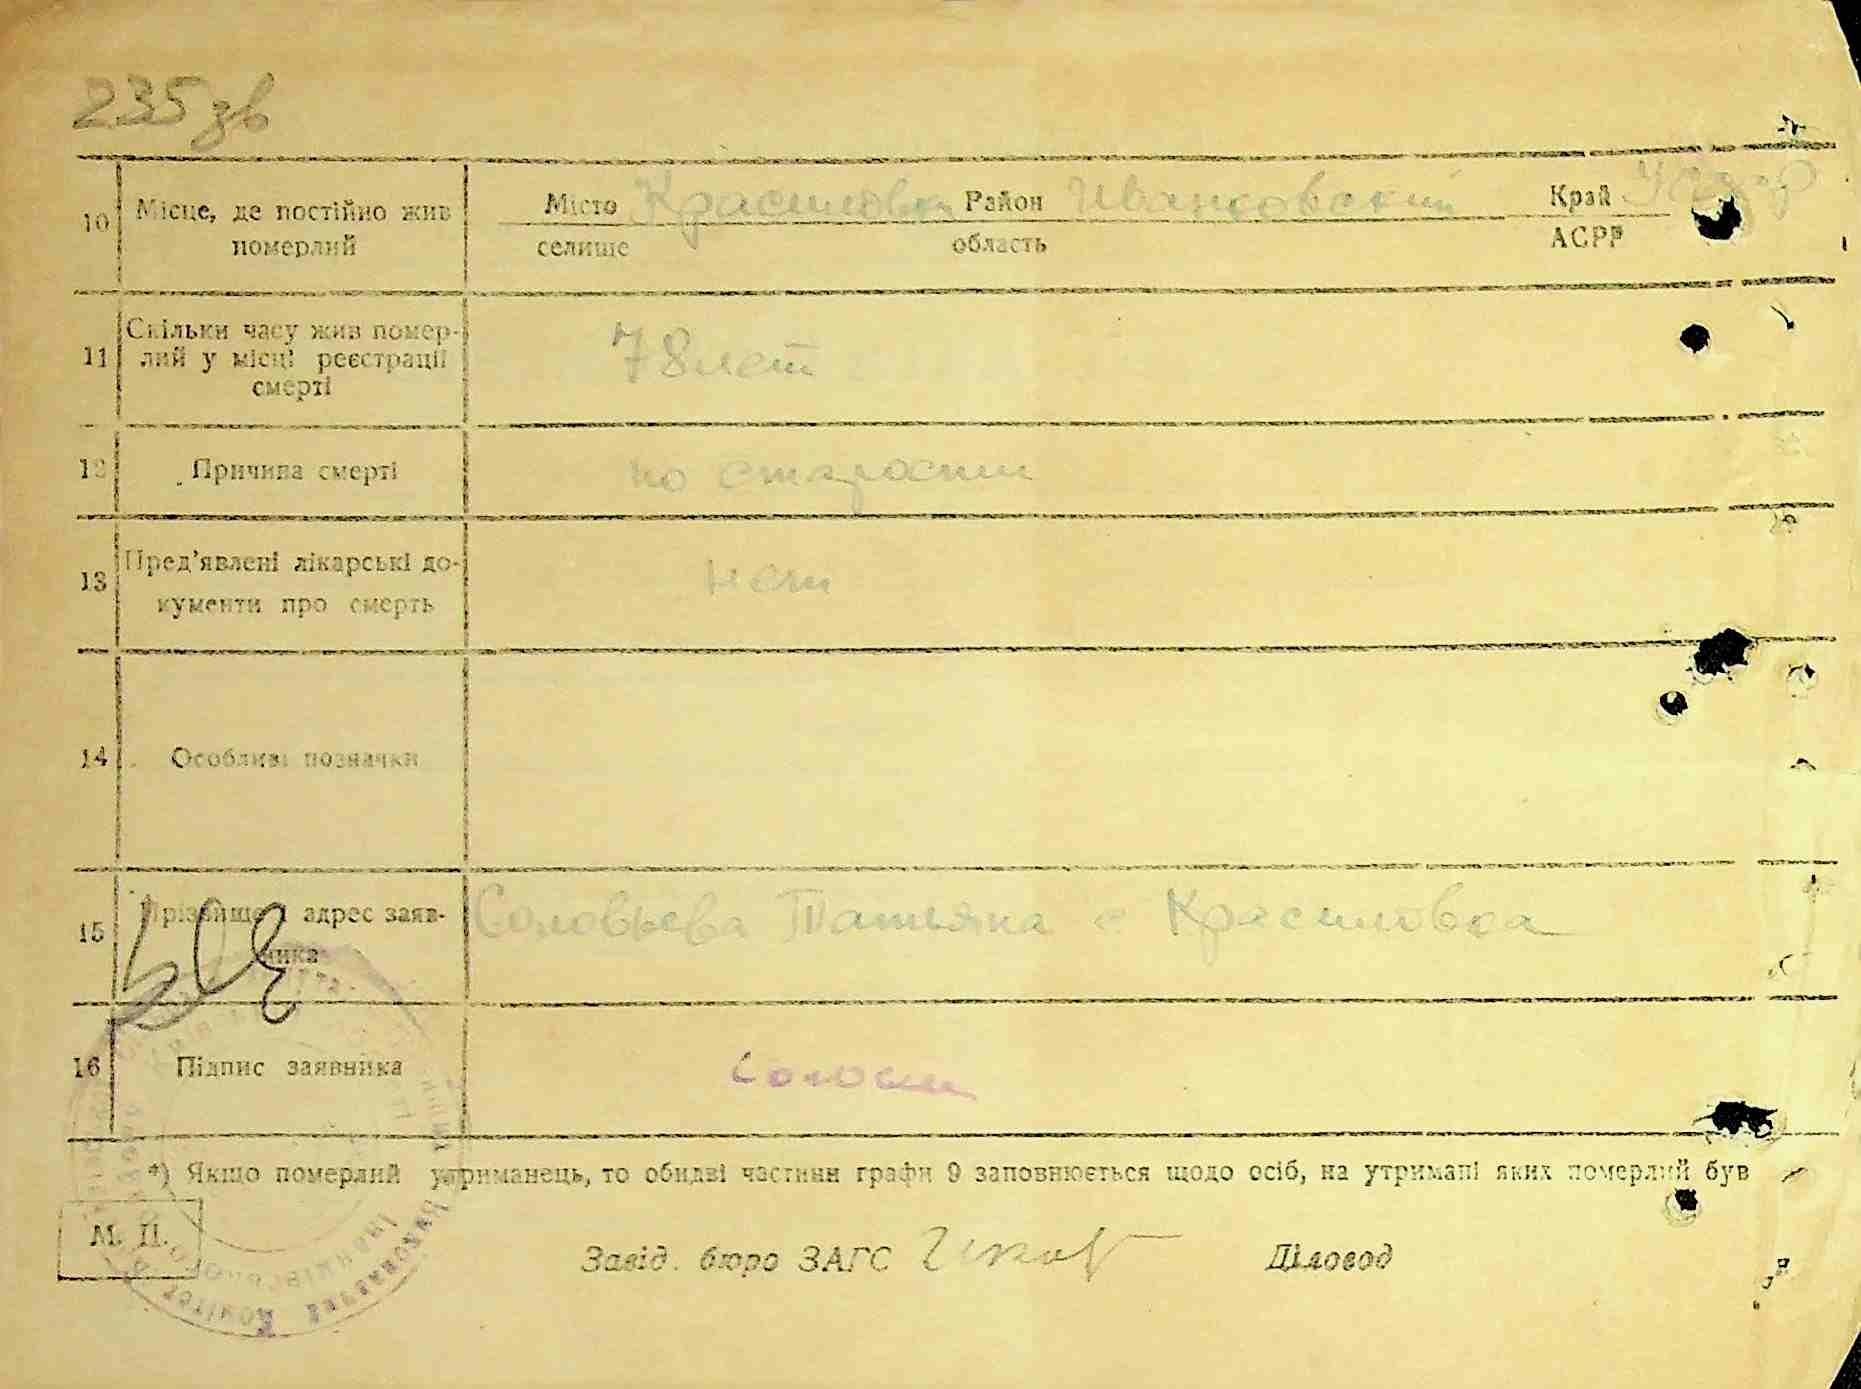 235 зв
10 Місце, де постійно жив померлий
Місто Красиловка Район Иванковский Край УССР
селище область АСРР
11 Скільки часу жив помер-
лий у місці реєстрації
смерті
78 лет
12 Причина смерті по старости
13 Пред'явлені лікарські до-
кументи про смерть
нет
14 Особливі позначки
15 Прізвище і адрес заяв-
ника
Соловьева Татьяна с Красиловка
16 Підпис заявника
*) Якщо померлий утриманець, то обидві частини графи 9 заповнюється щодо осіб, на утримані яких померлий був
М. П.
Завід. бюро ЗАГС Діловод
Виконавчий Комітет